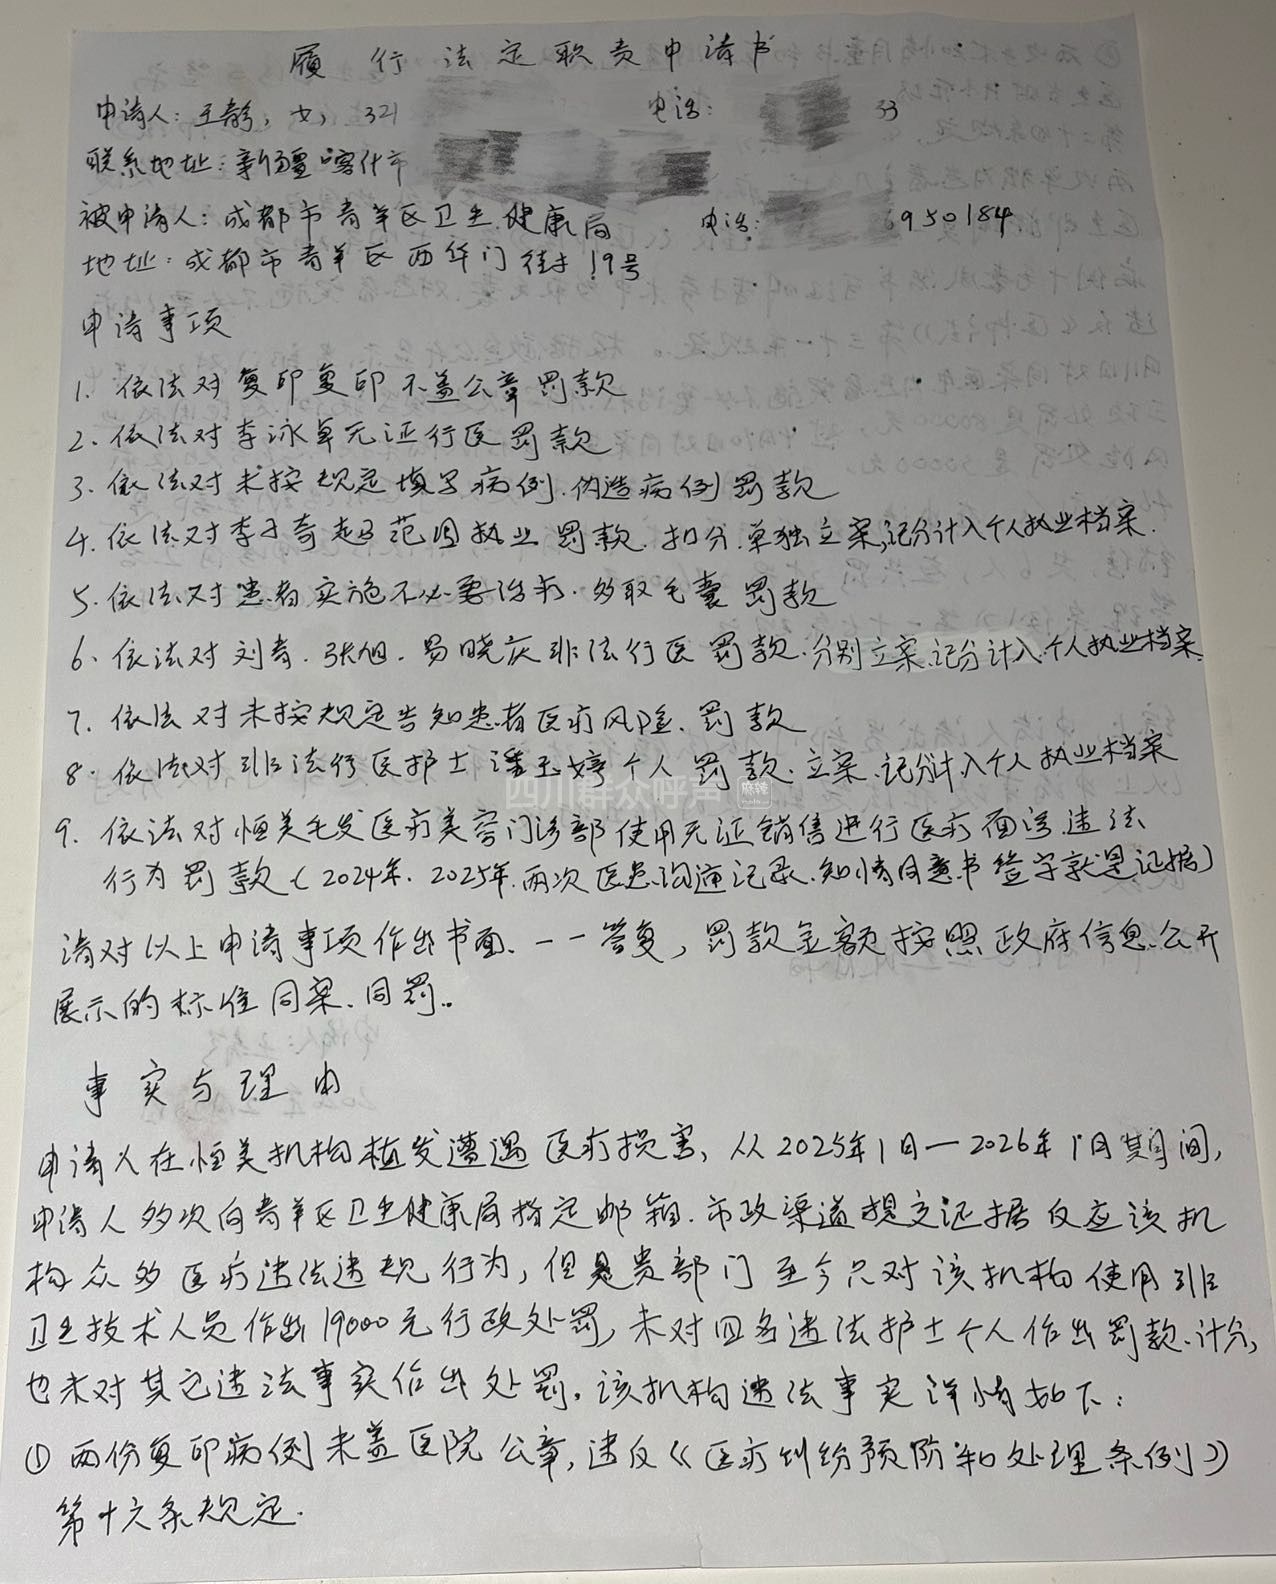 履行法定职责申请书
申请人：王静，女，321
电话：33
联系地址：新疆喀什市
被申请人：成都市青羊区卫生健康局
电话：6950184
地址：成都市青羊区西华门街19号
申请事项
1. 依法对复印复印不盖公章罚款
2. 依法对李泳单无证行医罚款
3. 依法对未按规定填写病例、伪造病例罚款
4. 依法对李子奇超范围执业罚款、扣分、单独立案，记分计入个人执业档案.
5. 依法对患者实施不必要治疗、多取毛囊罚款
6、依法对刘青、张旭、易晓庆非法行医罚款、分别立案、记分计入个人执业档案.
7、依法对未按规定告知患者医疗风险、罚款
8. 依法对非法行医护士潘玉婷个人罚款、立案、记分计入个人执业档案
四川群众呼声 麻辣
9. 依法对恒美毛发医疗美容门诊部使用无证销售进行医疗面诊违法
行为罚款（2024年、2025年两次医患沟通记录、知情同意书签字就是证据）
请对以上申请事项作出书面、一一答复，罚款金额按照政府信息公开
展示的标准同案、同罚。
事实与理由
申请人在恒美机构植发遭遇医疗损害，从2025年1日—2026年1月期间，
申请人多次向青羊区卫生健康局指定邮箱、市政渠道提交证据反应该机
构众多医疗违法违规行为，但是贵部门至今只对该机构使用非
卫生技术人员作出19000元行政处罚，未对四名违法护士个人作出罚款、计分，
也未对其它违法事实作出处罚。该机构违法事实详情如下：
① 两份复印病例未盖医院公章，违反《医疗纠纷预防和处理条例》
第十六条规定.